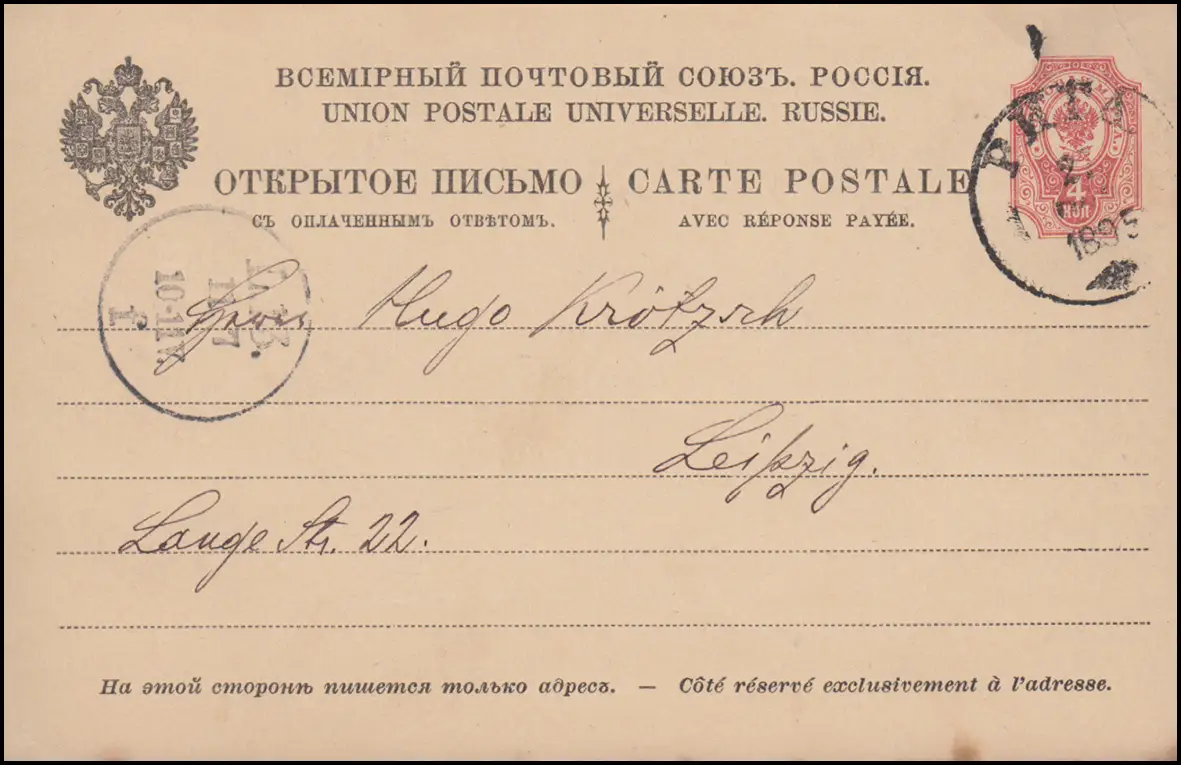 ВСЕМІРНЫЙ ПОЧТОВЫЙ СОЮЗЪ. РОССІЯ.
UNION POSTALE UNIVERSELLE. RUSSIE.
ОТКРЫТОЕ ПИСЬМО
CARTE POSTALE
СЪ ОПЛАЧЕННЫМЪ ОТВѢТОМЪ.
AVEC RÉPONSE PAYÉE.
РИГА.
2
1895
4
КОП
7
10-11V.
f
Herrn Hugo Krötzsch
Leipzig.
Lange Str. 22.
На этой сторонѣ пишется только адресъ. — Côté réservé exclusivement à l'adresse.